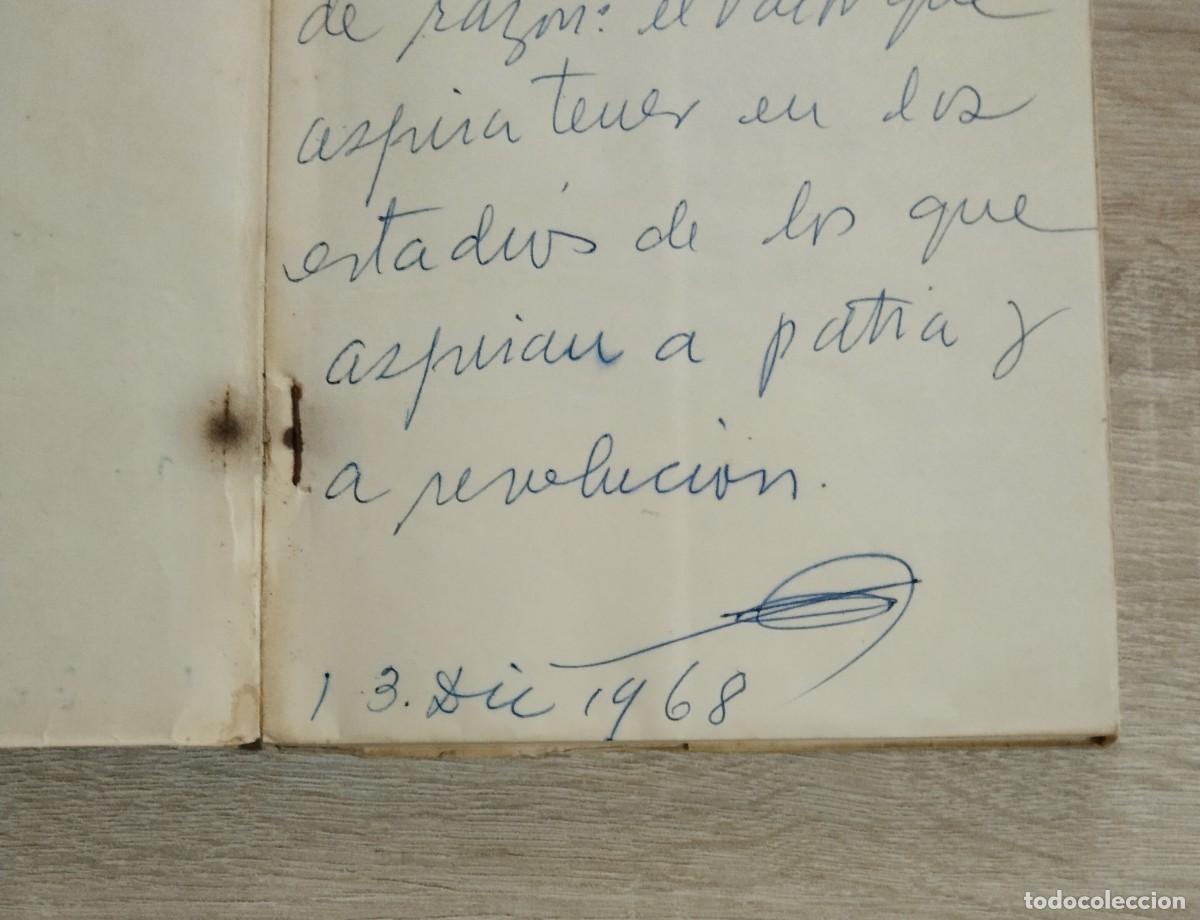 de razón: el valor que
aspira tener en los
estadios de los que
aspiran a patria y
a revolución.
13. Dic 1968
todocoleccion